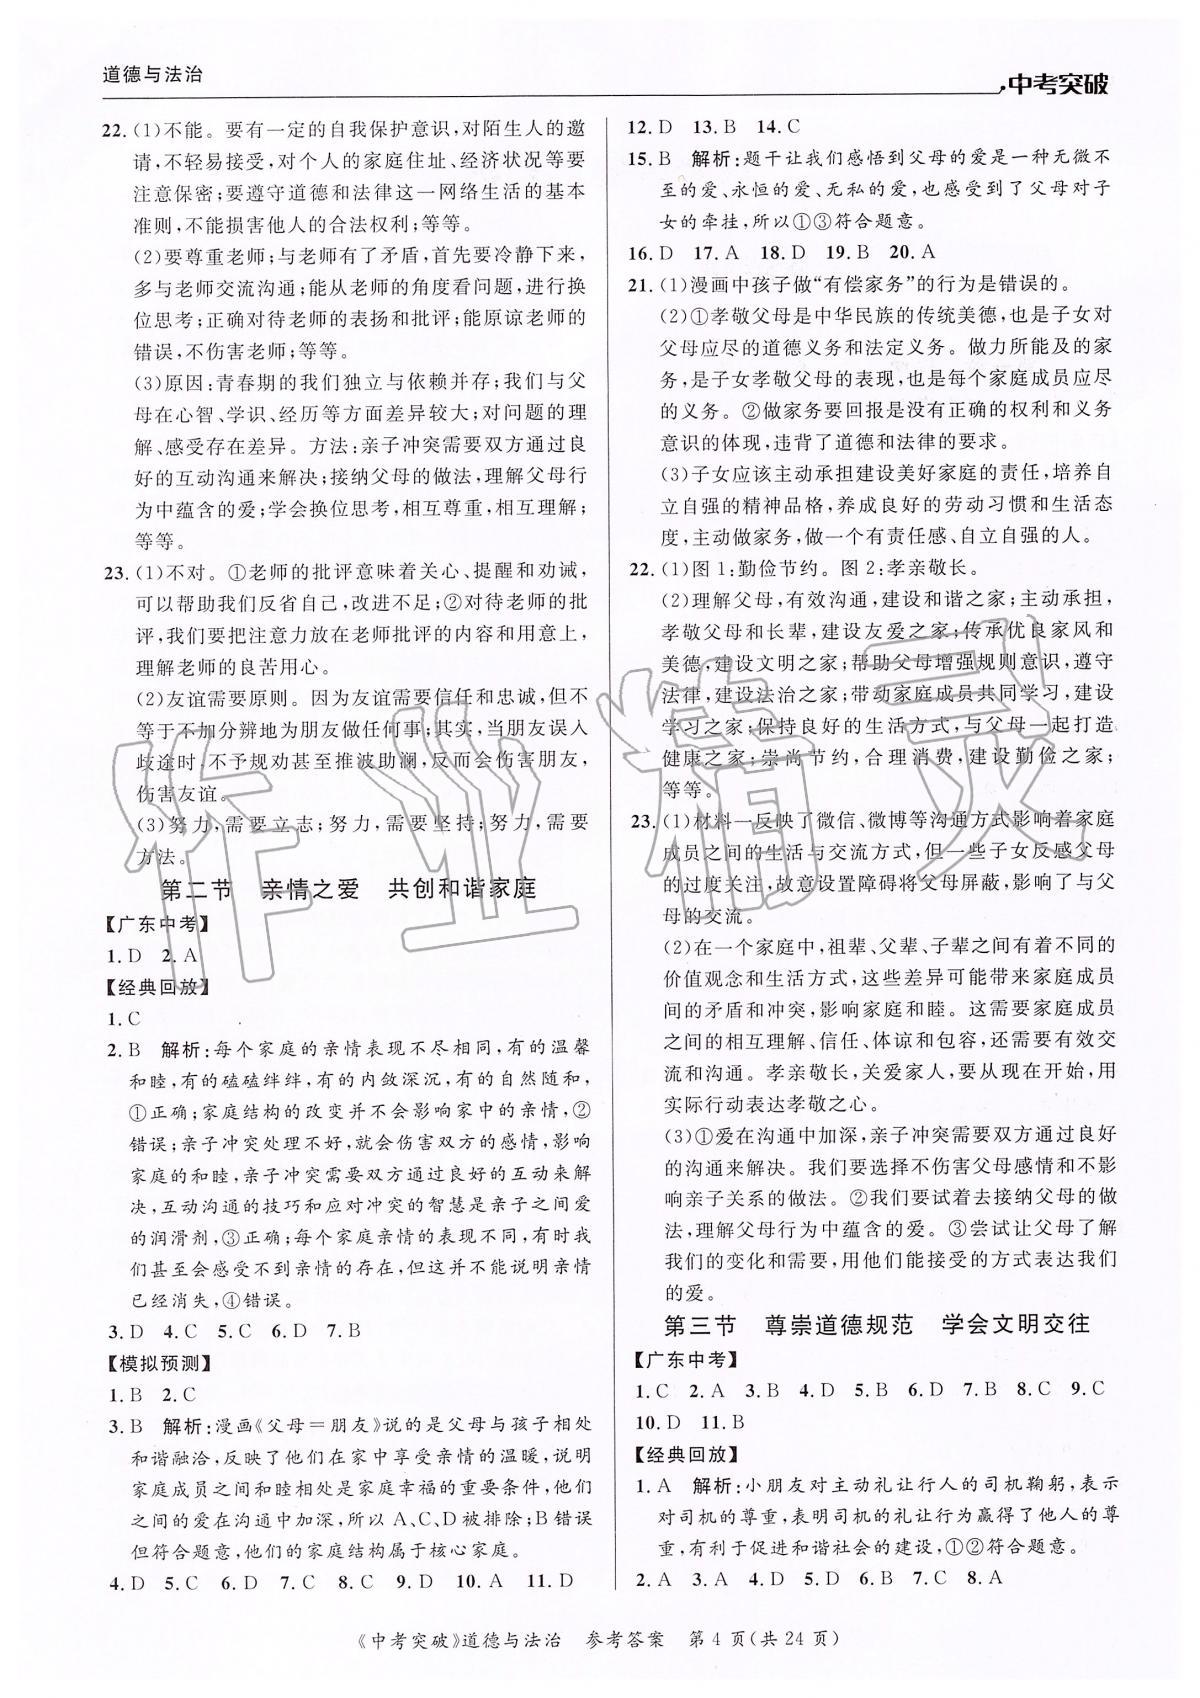 道德与法治
中考突破
22.(1)不能。要有一定的自我保护意识,对陌生人的邀
请,不轻易接受,对个人的家庭住址、经济状况等要
注意保密;要遵守道德和法律这一网络生活的基本
准则,不能损害他人的合法权利;等等。
(2)要尊重老师;与老师有了矛盾,首先要冷静下来,
多与老师交流沟通;能从老师的角度看问题,进行换
位思考;正确对待老师的表扬和批评;能原谅老师的
错误,不伤害老师;等等。
(3)原因:青春期的我们独立与依赖并存;我们与父
母在心智、学识、经历等方面差异较大;对问题的理
解、感受存在差异。方法:亲子冲突需要双方通过良
好的互动沟通来解决;接纳父母的做法,理解父母行
为中蕴含的爱;学会换位思考,相互尊重,相互理解;
等等。
23.(1)不对。①老师的批评意味着关心、提醒和劝诫,
可以帮助我们反省自己,改进不足;②对待老师的批
评,我们要把注意力放在老师批评的内容和用意上,
理解老师的良苦用心。
(2)友谊需要原则。因为友谊需要信任和忠诚,但不
等于不加分辨地为朋友做任何事;其实,当朋友误入
歧途时,不予规劝甚至推波助澜,反而会伤害朋友,
伤害友谊。
(3)努力,需要立志;努力,需要坚持;努力,需要
方法。
第二节 亲情之爱 共创和谐家庭
【广东中考】
1.D 2.A
【经典回放】
1.C
2.B 解析:每个家庭的亲情表现不尽相同,有的温馨
和睦,有的磕磕绊绊,有的内敛深沉,有的自然随和,
①正确;家庭结构的改变并不会影响家中的亲情,②
错误;亲子冲突处理不好,就会伤害双方的感情,影响
家庭的和睦,亲子冲突需要双方通过良好的互动来解
决,互动沟通的技巧和应对冲突的智慧是亲子之间爱
的润滑剂,③正确;每个家庭亲情的表现不同,有时我
们甚至会感受不到亲情的存在,但这并不能说明亲情
已经消失,④错误。
3.D 4.C 5.C 6.D 7.B
【模拟预测】
1.B 2.C
3.B 解析:漫画《父母=朋友》说的是父母与孩子相处
和谐融洽,反映了他们在家中享受亲情的温暖,说明
家庭成员之间和睦相处是家庭幸福的重要条件,他们
之间的爱在沟通中加深,所以A、C、D被排除;B错误
但符合题意,他们的家庭结构属于核心家庭。
4.D 5.C 6.D 7.C 8.C 9.D 10.A 11.D
12.D 13.B 14.C
15.B 解析:题干让我们感悟到父母的爱是一种无微不
至的爱、永恒的爱、无私的爱,也感受到了父母对子
女的牵挂,所以①③符合题意。
16.D 17.A 18.D 19.B 20.A
21.(1)漫画中孩子做“有偿家务”的行为是错误的。
(2)①孝敬父母是中华民族的传统美德,也是子女对
父母应尽的道德义务和法定义务。做力所能及的家
务,是子女孝敬父母的表现,也是每个家庭成员应尽
的义务。②做家务要回报是没有正确的权利和义务
意识的体现,违背了道德和法律的要求。
(3)子女应该主动承担建设美好家庭的责任,培养自
立自强的精神品格,养成良好的劳动习惯和生活态
度,主动做家务,做一个有责任感、自立自强的人。
22.(1)图1:勤俭节约。图2:孝亲敬长。
(2)理解父母,有效沟通,建设和谐之家;主动承担,
孝敬父母和长辈,建设友爱之家;传承优良家风和
美德,建设文明之家;帮助父母增强规则意识,遵守
法律,建设法治之家;带动家庭成员共同学习,建设
学习之家;保持良好的生活方式,与父母一起打造
健康之家;崇尚节约,合理消费,建设勤俭之家;
等等。
23.(1)材料一反映了微信、微博等沟通方式影响着家庭
成员之间的生活与交流方式,但一些子女反感父母
的过度关注,故意设置障碍将父母屏蔽,影响了与父
母的交流。
(2)在一个家庭中,祖辈、父辈、子辈之间有着不同的
价值观念和生活方式,这些差异可能带来家庭成员
间的矛盾和冲突,影响家庭和睦。这需要家庭成员
之间的相互理解、信任、体谅和包容,还需要有效交
流和沟通。孝亲敬长,关爱家人,要从现在开始,用
实际行动表达孝敬之心。
(3)①爱在沟通中加深,亲子冲突需要双方通过良好
的沟通来解决。我们要选择不伤害父母感情和不影
响亲子关系的做法。②我们要试着去接纳父母的做
法,理解父母行为中蕴含的爱。③尝试让父母了解
我们的变化和需要,用他们能接受的方式表达我们
的爱。
第三节 尊崇道德规范 学会文明交往
【广东中考】
1.C 2.A 3.B 4.D 5.B 6.D 7.B 8.C 9.C
10.D 11.B
【经典回放】
1.A 解析:小朋友对主动礼让行人的司机鞠躬,表示
对司机的尊重,表明司机的礼让行为赢得了他人的尊
重,有利于促进和谐社会的建设,①②符合题意。
2.A 3.A 4.D 5.C 6.D 7.C 8.A
《中考突破》道德与法治 参考答案 第4页(共24页)
作业精灵